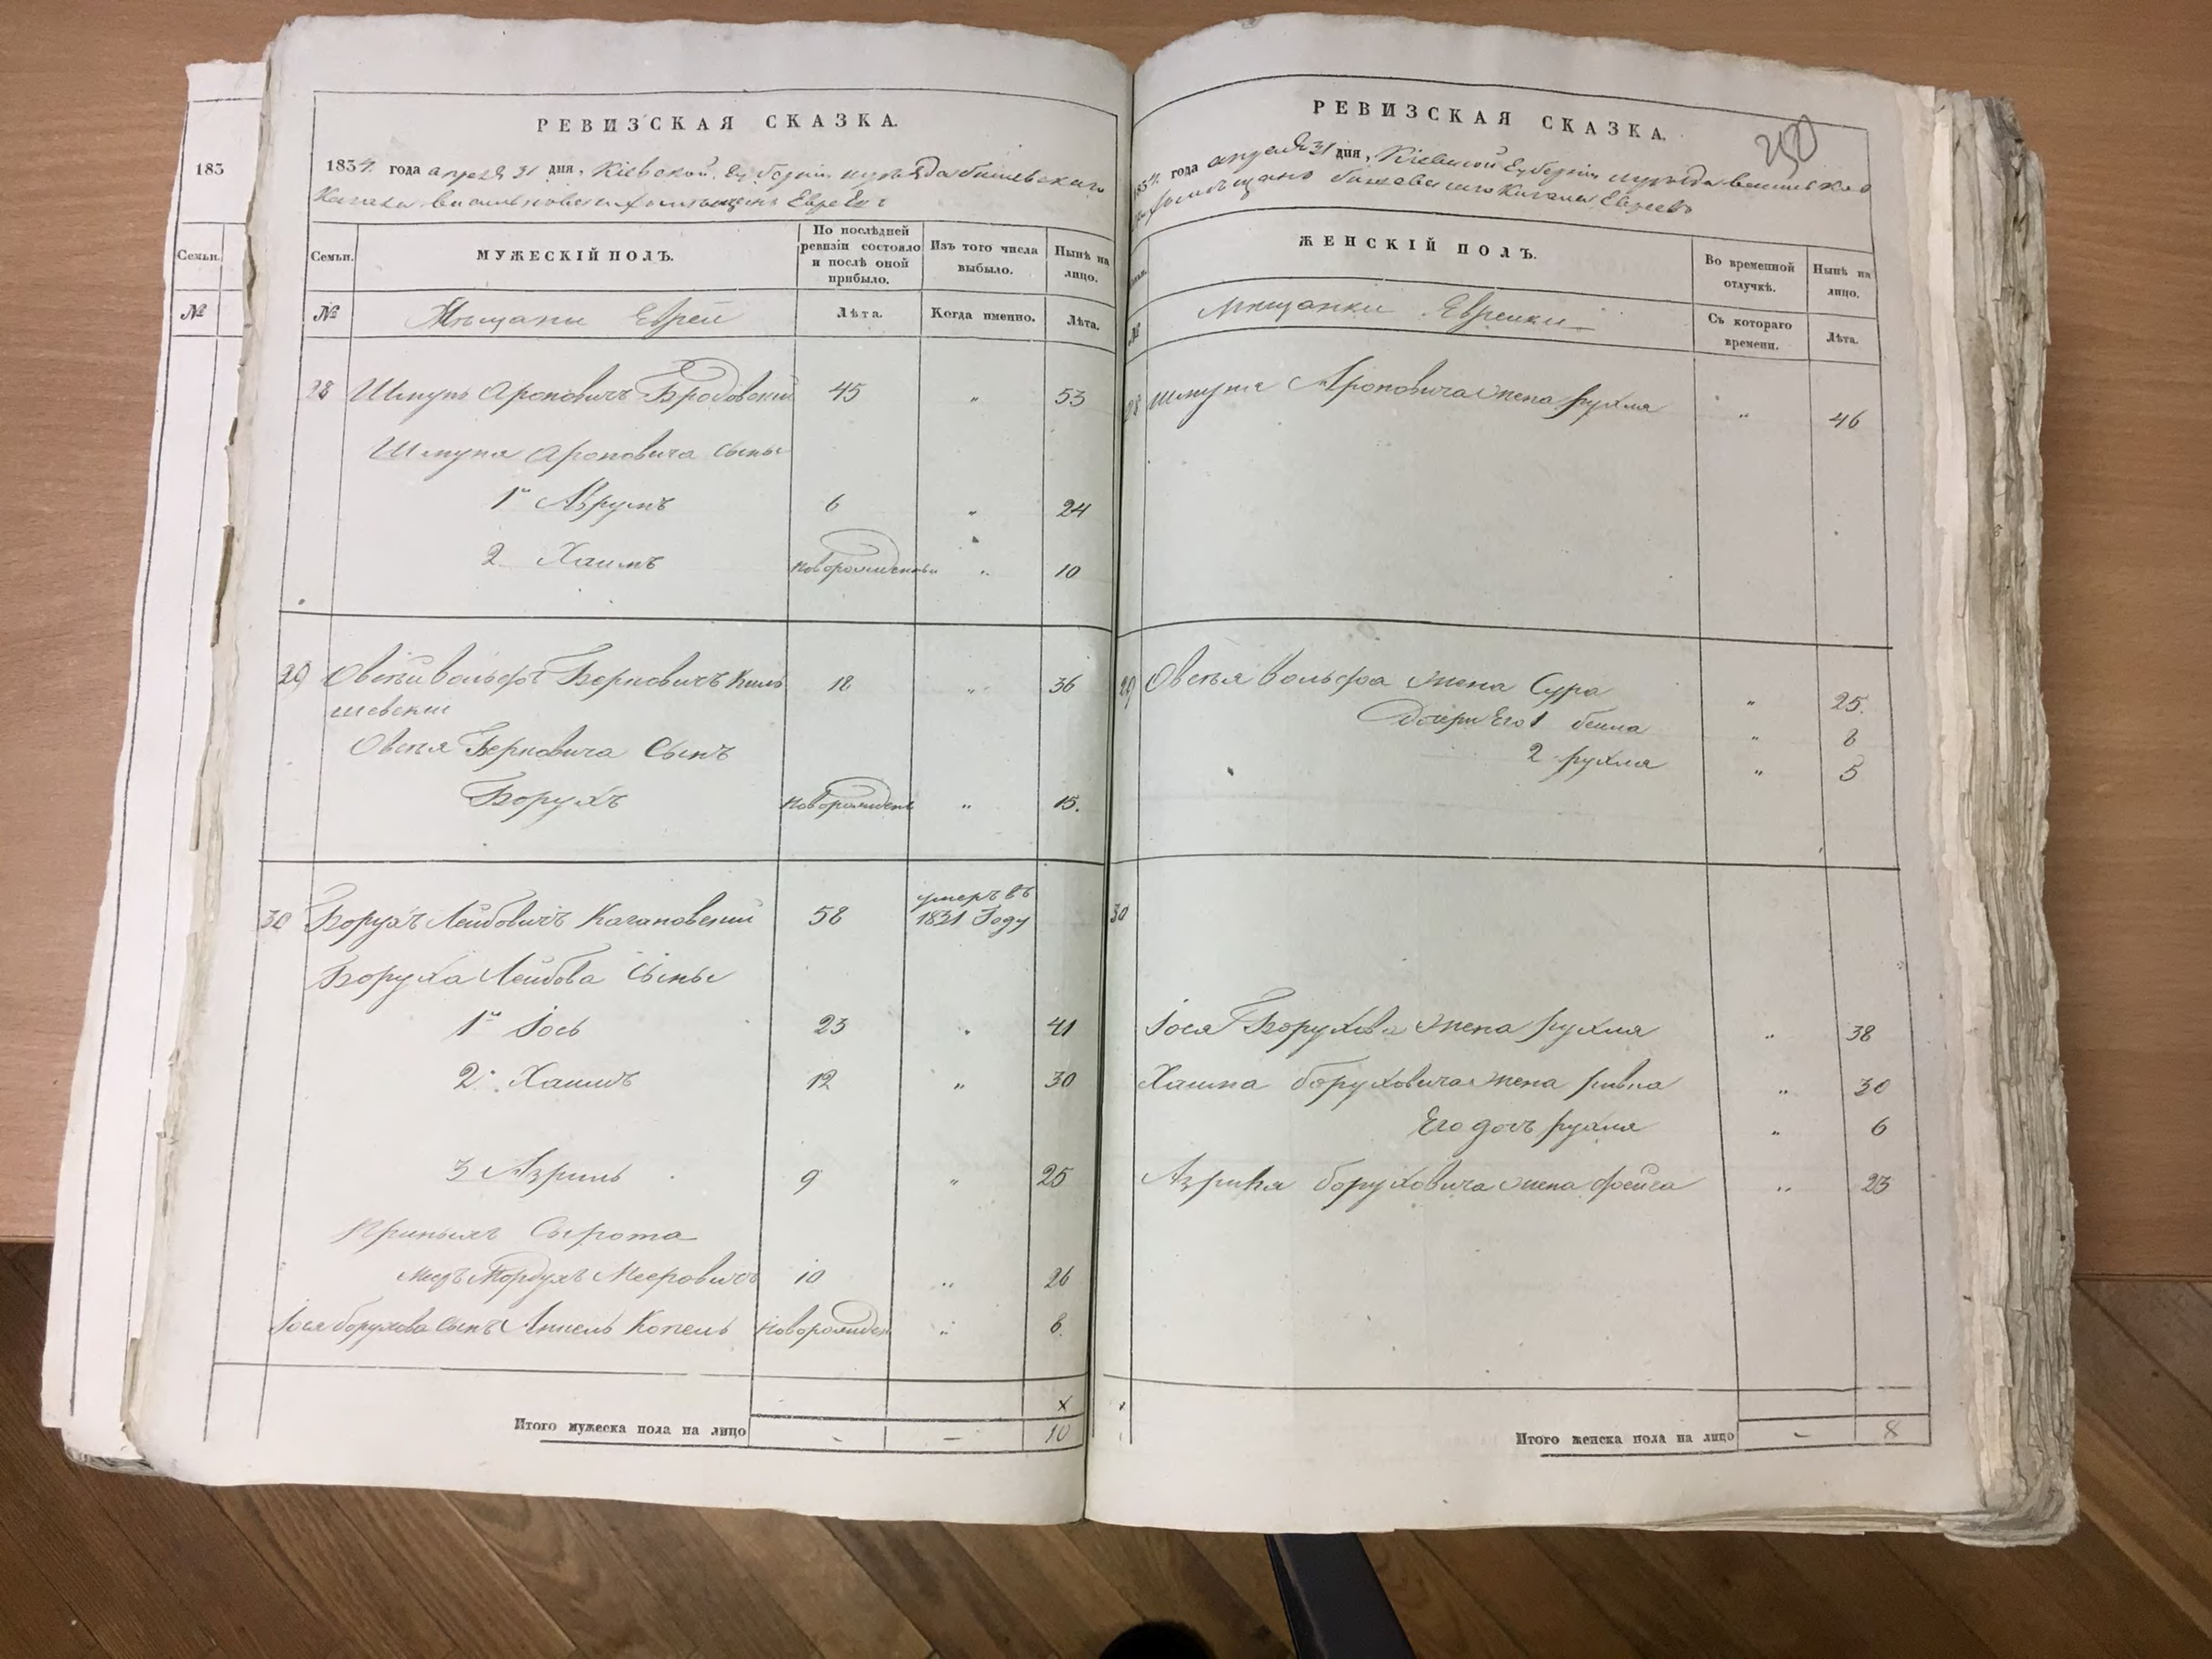 183
Семьи.
№
РЕВИЗСКАЯ СКАЗКА.
1834 года апреля 31 дня, Кіевской Губерніи
Кагала Евреевъ
Семьи.
МУЖЕСКІЙ ПОЛЪ.
По послѣдней ревизіи состояло и послѣ оной прибыло.
Изъ того числа выбыло.
Нынѣ на лицо.
№
Мѣщани Евреи
Лѣта.
Когда именно.
Лѣта.
28 Шмуль Ароновичъ Бродовский 45 „ 53
Шмуля Ароновича сыны
1й Аврумъ 6 „ 24
2 Хаимъ новорожденный „ 10
29 Овсѣй Вольфъ Берковичъ 18 „ 36
шевский
Овсѣя Берковича Сынъ
Борухъ новорожден „ 15.
30 Борухъ Лейбовичъ Кагановский 58 умеръ въ 1821 Году
Боруха Лейбова Сыны
1й Іось 23 „ 41
2. Хаимъ 12 „ 30
3 Азриль 9 „ 25
Приныхъ Сырота
Мордухъ Мееровичъ 10 „ 26
Іося Борухова сынъ Копель новорожден „ 6.
х
Итого мужеска пола на лицо - - 10
РЕВИЗСКАЯ СКАЗКА.
250
1834 года апреля 31 дня, Кіевской Губерніи
Кагала Евреевъ
ЖЕНСКІЙ ПОЛЪ.
Во временной отлучкѣ.
Нынѣ на лицо.
№
Мѣщанки Еврейки
Съ котораго времени.
Лѣта.
28 Шмуля Ароновича жена рухля „ 46
29 Овсѣя Вольфа жена Сура „ 25.
Дочери Его 1 бейла „ 8
2 рухля „ 5
30
Іося Борухова жена рухля „ 38
Хаима боруховича жена ривка „ 30
Его дочь рухля „ 6
Азриля боруховича жена фейга „ 23
х
Итого женска пола на лицо - 8